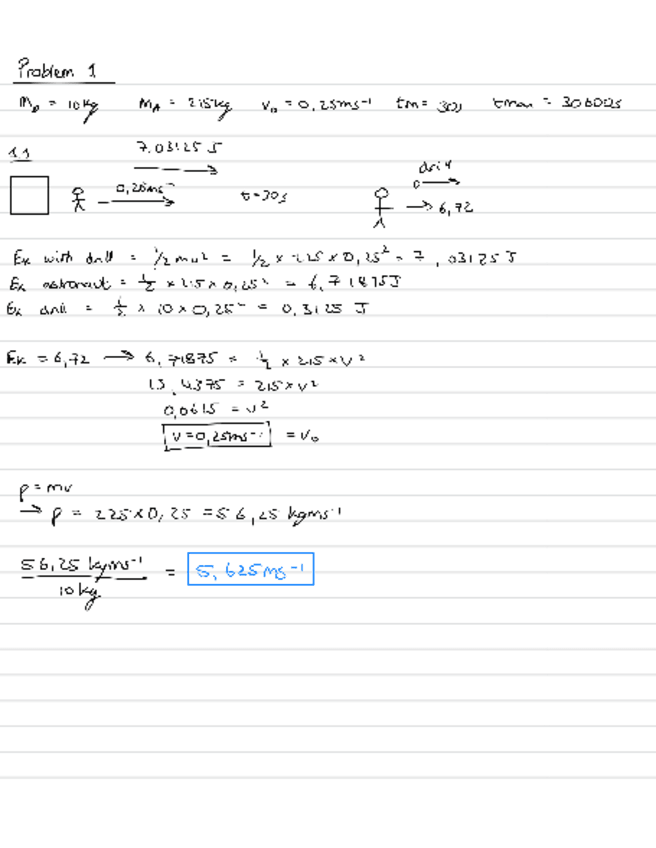 Problem 1
M_D = 10kg M_A = 215kg v_0 = 0,25ms⁻¹ tm = 30s tmax = 30600s
1.1
7.03125 J
0,25ms⁻¹
t=30s
drill
→ 6,72
Ek with drill = 1/2 mv² = 1/2 × 225 × 0,25² = 7,03125 J
Ek astronaut = 1/2 × 215 × 0,25² = 6,71875J
Ek drill = 1/2 × 10 × 0,25² = 0,3125 J
Ek = 6,72 → 6,71875 = 1/2 × 215 × v²
13,4375 = 215 × v²
0,0625 = v²
v = 0,25ms⁻¹ = v_0
p = mv
→ p = 225 × 0,25 = 56,25 kgms⁻¹
56,25 kgms⁻¹ / 10 kg = 5,625 ms⁻¹